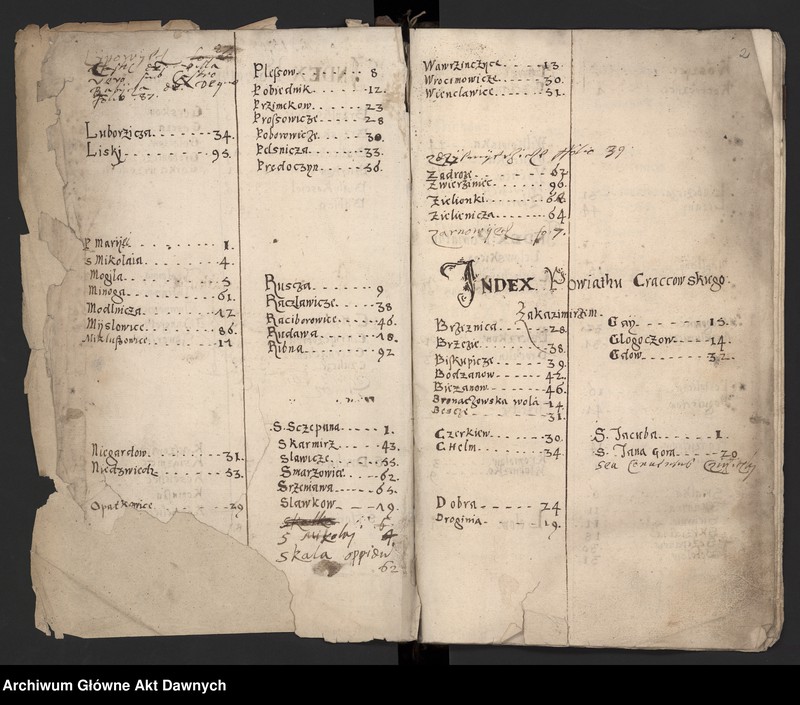 Luborzicza 34.
Liski 95.
P Mariyej 1.
S Mikolaia 4.
Mogila 5
Minoga 61.
Modlnicza 12
Myslowice 86.
Mikluszowice 11
Niegardow 31.
Niedzwiedz 53.
Opatkowice 29
Plessow 8
Pobiednik 12.
Przimekow 23
Prossowicze 28
Poborowicze 30.
Pelsnicza 33.
Predoczyn 56.
Rusza 9
Raczlawicze 38
Raciborowice 46.
Rudawa 18.
Ribna 92
S. Sczepana 1.
Skarmirz 43.
Slawicze 55.
Smarzowice 62.
Srzeniawa 65.
Slawkow 19.
S Mikolaj 4.
Skala oppidu
62
2
Wawrzinczyce 13.
Wrocimowicze 30.
Wienclawice 51.
39
Zadroze 67
Zwierziniec 96.
Zielionki 68
Zielienicza 64
INDEX Powiathu Craccowskiego
Zakazimirzem.
Brzeznica 28.
Brzezie 38.
Biskupicze 39.
Bodzanow 42.
Biezanow 46.
Bronaczowska wola 14
31.
Czerkiew 30.
Chelm 34
Dobra 24
Droginia 19.
Gay 15.
Glogoczow 14.
Gdow 32
S. Jacuba 1.
S. Jana Gora 20
Archiwum Główne Akt Dawnych